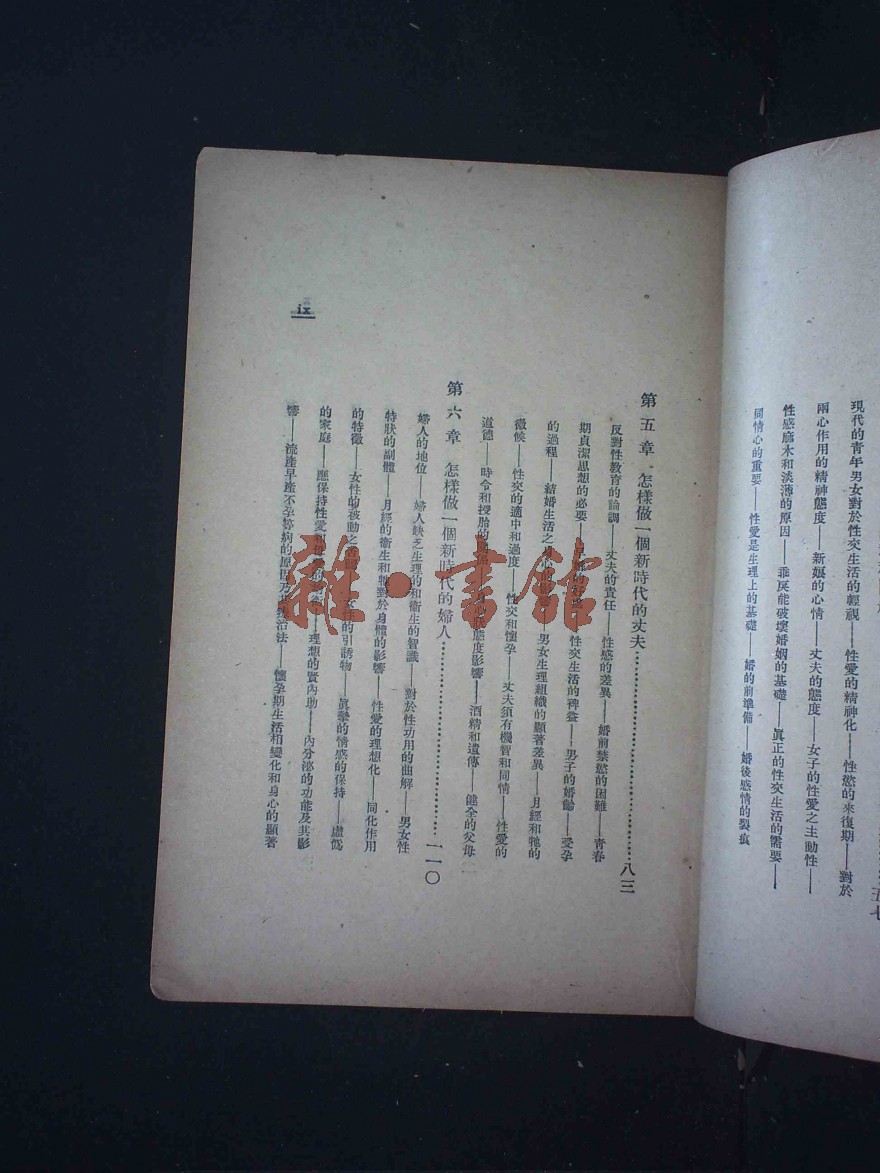 現代的青年男女對於性交生活的輕視——性愛的精神化——性慾的來復期——對於
兩心作用的精神態度——新孃的心情——丈夫的態度——女子的性愛之主動性——
性感麻木和淡薄的原因——乖戾能破壞婚姻的基礎——眞正的性交生活的需要——
同情心的重要——性愛是生理上的基礎——婚的前準備——婚後感情的裂痕
五七
第五章 怎樣做一個新時代的丈夫……八三
反對性教育的論調——丈夫的責任——性感的差異——婚前禁慾的困難——青春
期貞潔思想的必要——性交生活的裨益——男子的婚齡——受孕
的過程——結婚生活之——男女生理組織的顯著差異——月經和牠的
徵候——性交的適中和過度——性交和懷孕——丈夫須有機智和同情——性愛的
道德——時令和授胎的——態度影響——酒精和遺傳——健全的父母
第六章 怎樣做一個新時代的婦人……一一〇
婦人的地位——婦人缺乏生理的和衞生的智識——對於性功用的曲解——男女性
特狀的副體——月經的衞生和牠對於身體的影響——性愛的理想化——同化作用
的特徵——女性的被動之——的引誘物——眞摯的情感的保持——虛僞
的家庭——應保持性愛和——理想的賢內助——內分泌的功能及其影
響——流產早產不孕等病的原因及其療治法——懷孕期生活相變化和身心的顯著
ix
雜·書館